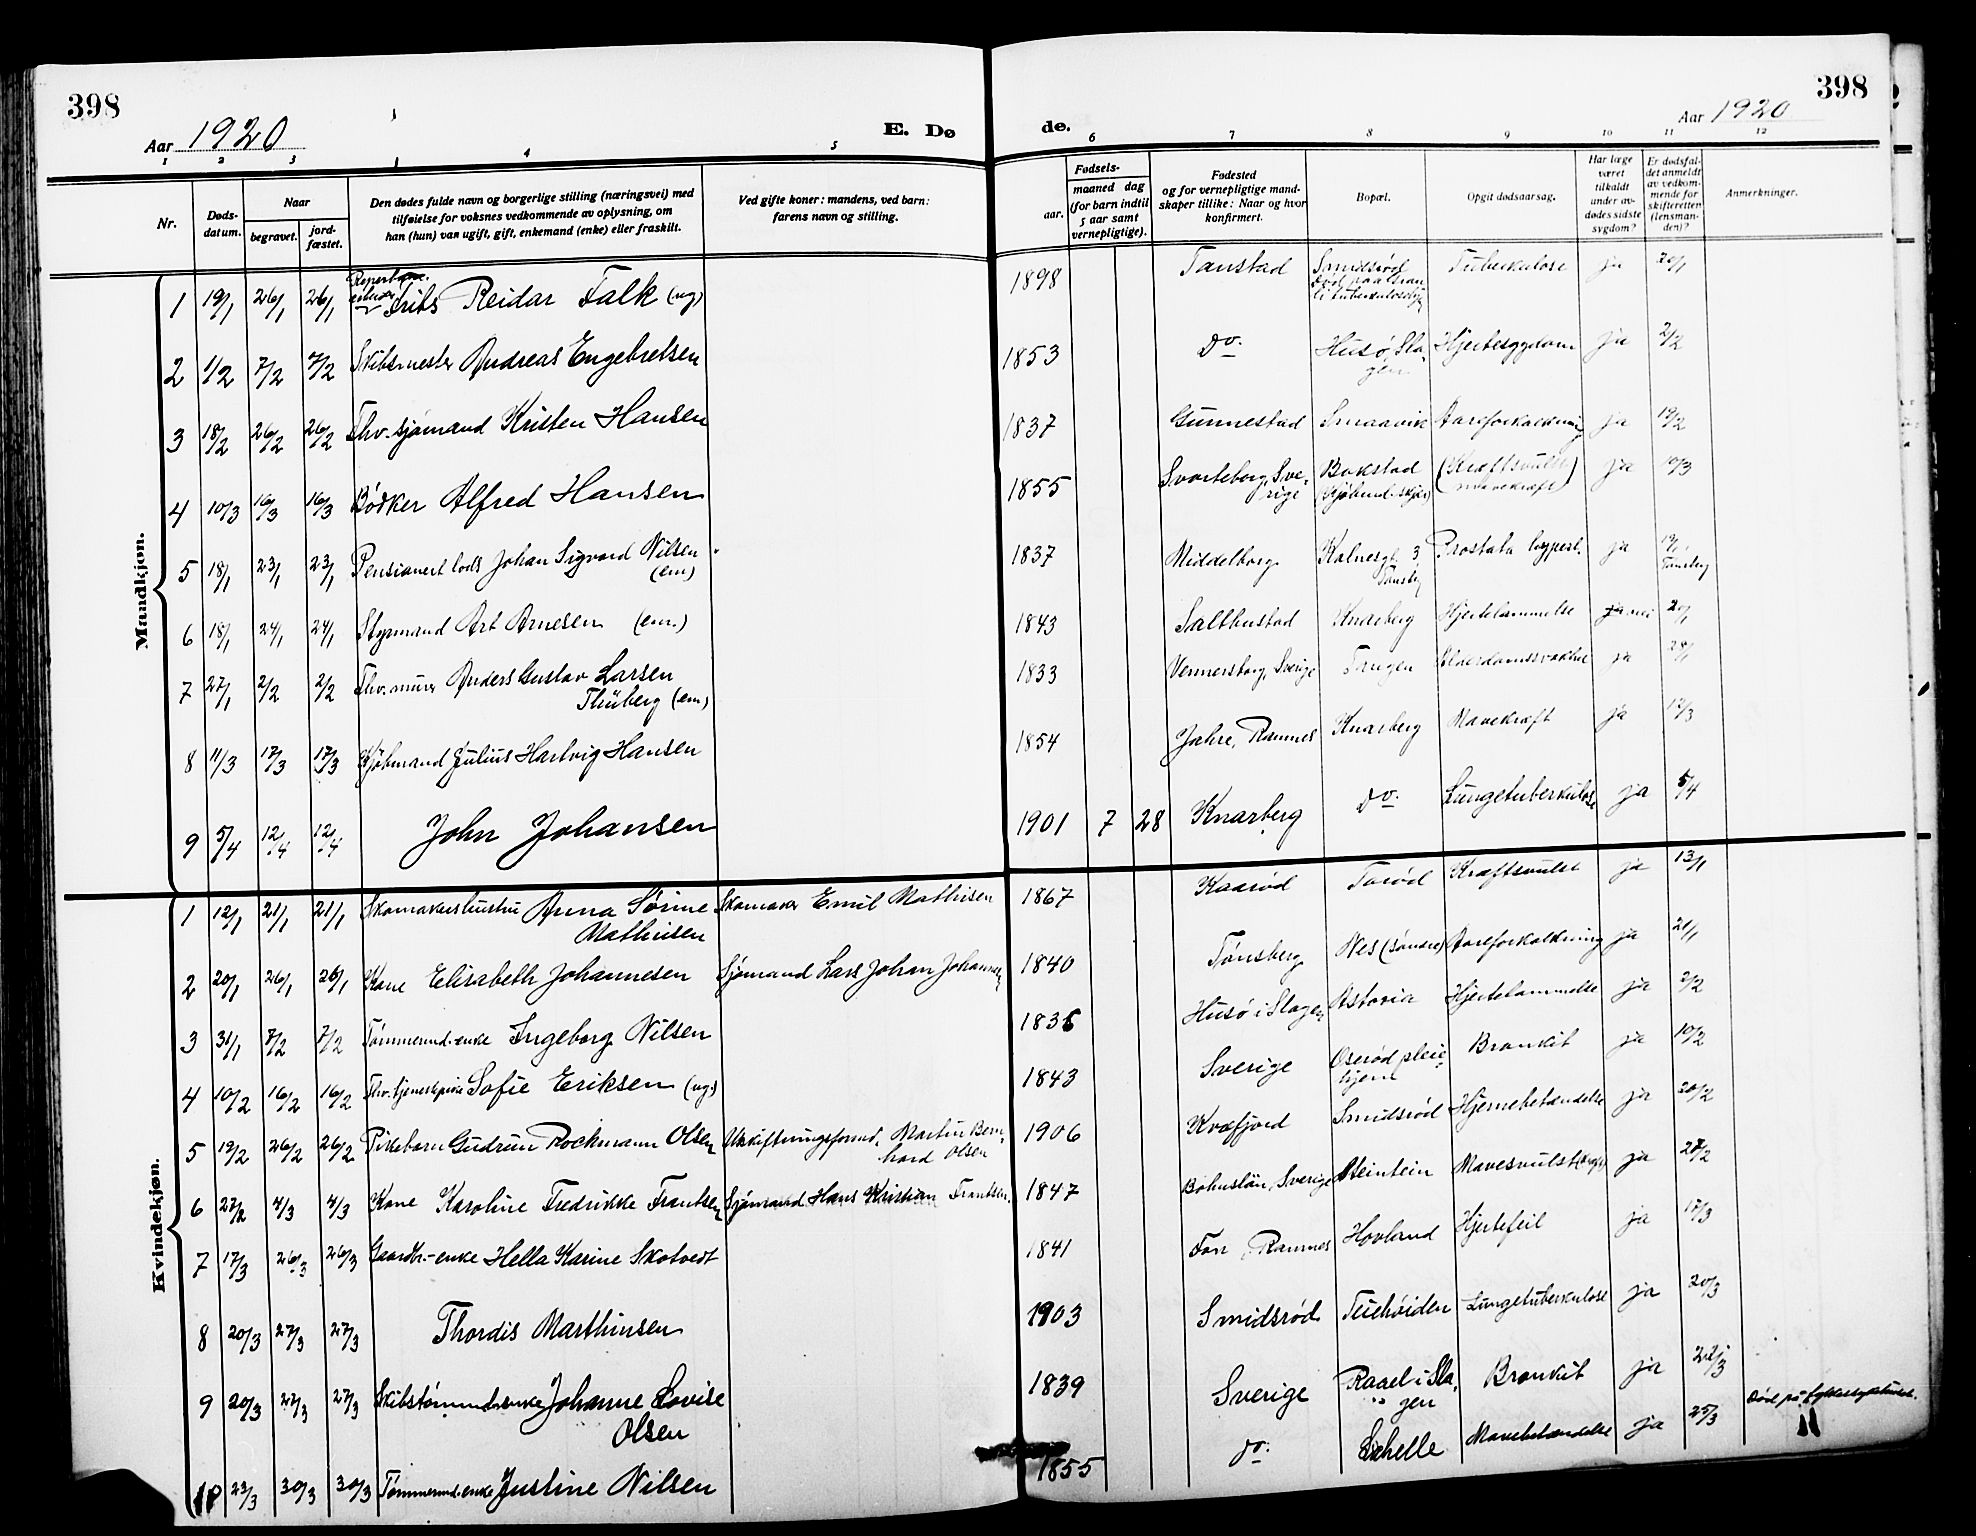 398
398
Aar 1920
E. Dø
de.
Aar 1920
1 2 3 4 5 6 7 8 9 10 11 12
Nr.
Døds-
datum.
Naar
begravet.
jord-
fæstet.
Den dødes fulde navn og borgerlige stilling (næringsvei) med
tilføielse for voksnes vedkommende av oplysning, om
han (hun) var ugift, gift, enkemand (enke) eller fraskilt.
Ved gifte koner: mandens, ved barn:
farens navn og stilling.
Fødsels-
aar.
maaned dag
(for barn indtil
5 aar samt
vernepligtige).
Fødested
og for vernepligtige mand-
skaper tillike: Naar og hvor
konfirmert.
Bopæl.
Opgit dødsaarsag.
Har læge
været
tilkaldt
under av-
dødes sidste
sygdom?
Er dødsfal-
det anmeldt
av vedkom-
mende for
skifteretten
(lensman-
den)?
Anmerkninger.
Mandkjøn.
1 19/1 26/1 26/1 Reidar Falk (ug) 1898 Tanstad Smidsrød Tuberkulose ja 20/1
2 1/2 7/2 7/2 Skibsmester Andreas Engebretsen 1853 Do. Husø, Sla-
gen Hjertesygdom ja 2/2
3 18/2 26/2 26/2 Fhv. sjømand Kristen Hansen 1837 Gunnestad Smaavik Aareforkalkning ja 19/2
4 10/3 16/3 16/3 Bødker Alfred Hansen 1855 Svarteborg, Sve-
rige Bakstad (Kræftsvulst)
mavekræft ja 10/3
5 18/1 23/1 23/1 Pensionert lods Johan Sigvard Nilsen
(em) 1837 Middelborg Kalnesgt. 3
Tønsberg Prostata hypert. ja 19/1
Tønsberg
6 18/1 24/1 24/1 Styrmand Art Arnesen (em.) 1843 Salthustad Knarberg Hjertelammelse ja nei 20/1
7 27/1 2/2 2/2 Fhv. murer Anders Gustav Larsen
Thüberg (em) 1833 Vennersborg, Sverige Tangen Alderdomssvakhet ja 28/1
8 11/3 17/3 17/3 Kjøbmand Julius Hartvig Hansen 1854 Jahre, Ramnes Knarberg Mavekræft ja 12/3
9 5/4 12/4 12/4 John Johansen 1901 7 28 Knarberg Do. Lungetuberkulose ja 5/4
Kvindekjøn.
1 12/1 21/1 21/1 Skomakerhustru Anna Sørine
Mathisen Skomaker Emil Mathisen 1867 Kaarød Torød Kræftsvulst ja 13/1
2 20/1 26/1 26/1 Kone Elisabeth Johannesen Sjømand Lars Johan Johannesen 1840 Tønsberg Nes (søndre) Aareforkalkning ja 21/1
3 31/1 8/2 8/2 Tømmermd.enke Ingeborg Nilsen 1835 Husø i Slagen Astoria Hjertelammelse ja 2/2
4 10/2 16/2 16/2 Fhv. tjenestepike Sofie Eriksen (ug.) 1843 Sverige Oserød pleie-
hjem Bronkit ja 10/2
5 19/2 26/2 26/2 Pikebarn Gudrun Rockmann Olsen Utskiftningsformd. Martin Bern-
hard Olsen 1906 Kvæfjord Smidsrød Hjernebetændelse ja 20/2
6 27/2 4/3 4/3 Kone Karoline Fredrikke Frantsen Sjømand Hans Kristian Frantsen 1847 Bohuslän, Sverige Steintein Mavesvulst ja 28/2
7 17/3 26/3 26/3 Gaardbr.-enke Hella Karine Skotvedt 1841 Fon, Ramnes Hovland Hjertefeil ja 17/3
8 20/3 27/3 27/3 Thordis Marthinsen 1903 Smidsrød Teiehøiden Lungetuberkulose ja 20/3
9 20/3 27/3 27/3 Skibstømmermd.enke Johanne Lovise
Olsen 1839 Sverige Raael i Sla-
gen Bronkit ja 22/3
10 23/3 30/3 30/3 Tømmermd.enke Justine Nilsen 1855 Do. Skhelle Mavebetændelse ja 25/3 Død på fylkessykehuset.